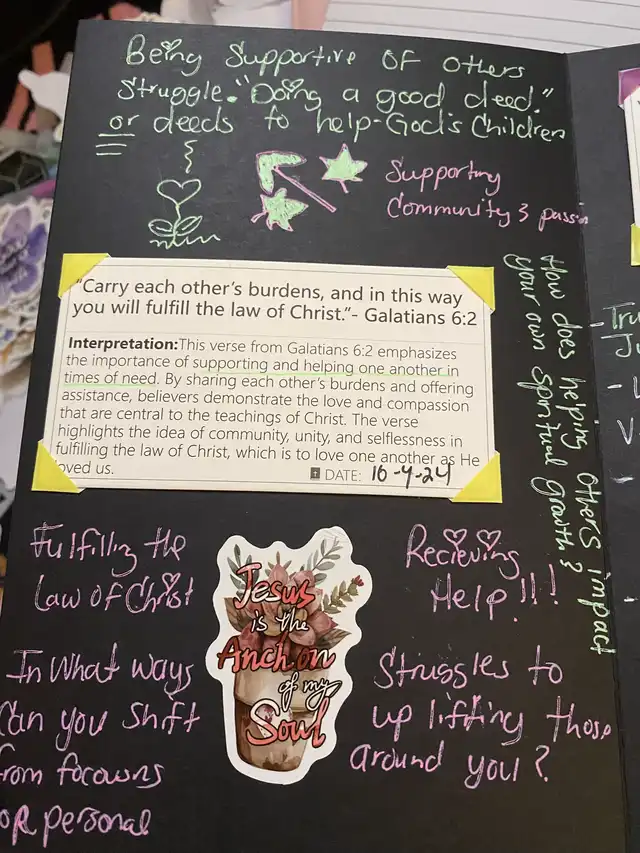 Being Supportive OF others
Struggle. "Doing a good deed."
or deeds to help-God's Children
Supporting
Community & passion
"Carry each other's burdens, and in this way
you will fulfill the law of Christ."- Galatians 6:2
Interpretation:This verse from Galatians 6:2 emphasizes
the importance of supporting and helping one another in
times of need. By sharing each other's burdens and offering
assistance, believers demonstrate the love and compassion
that are central to the teachings of Christ. The verse
highlights the idea of community, unity, and selflessness in
fulfilling the law of Christ, which is to love one another as He
loved us.
DATE: 16-4-24
How does helping others impact
your own Spiritual growth?
Fulfilling the
Law of Christ
Jesus
is the
Anchor
of my
Soul
Recieving
Help!!!
In What ways
Can you Shift
from focowns
OR personal
Struggles to
up lifting those
around you?